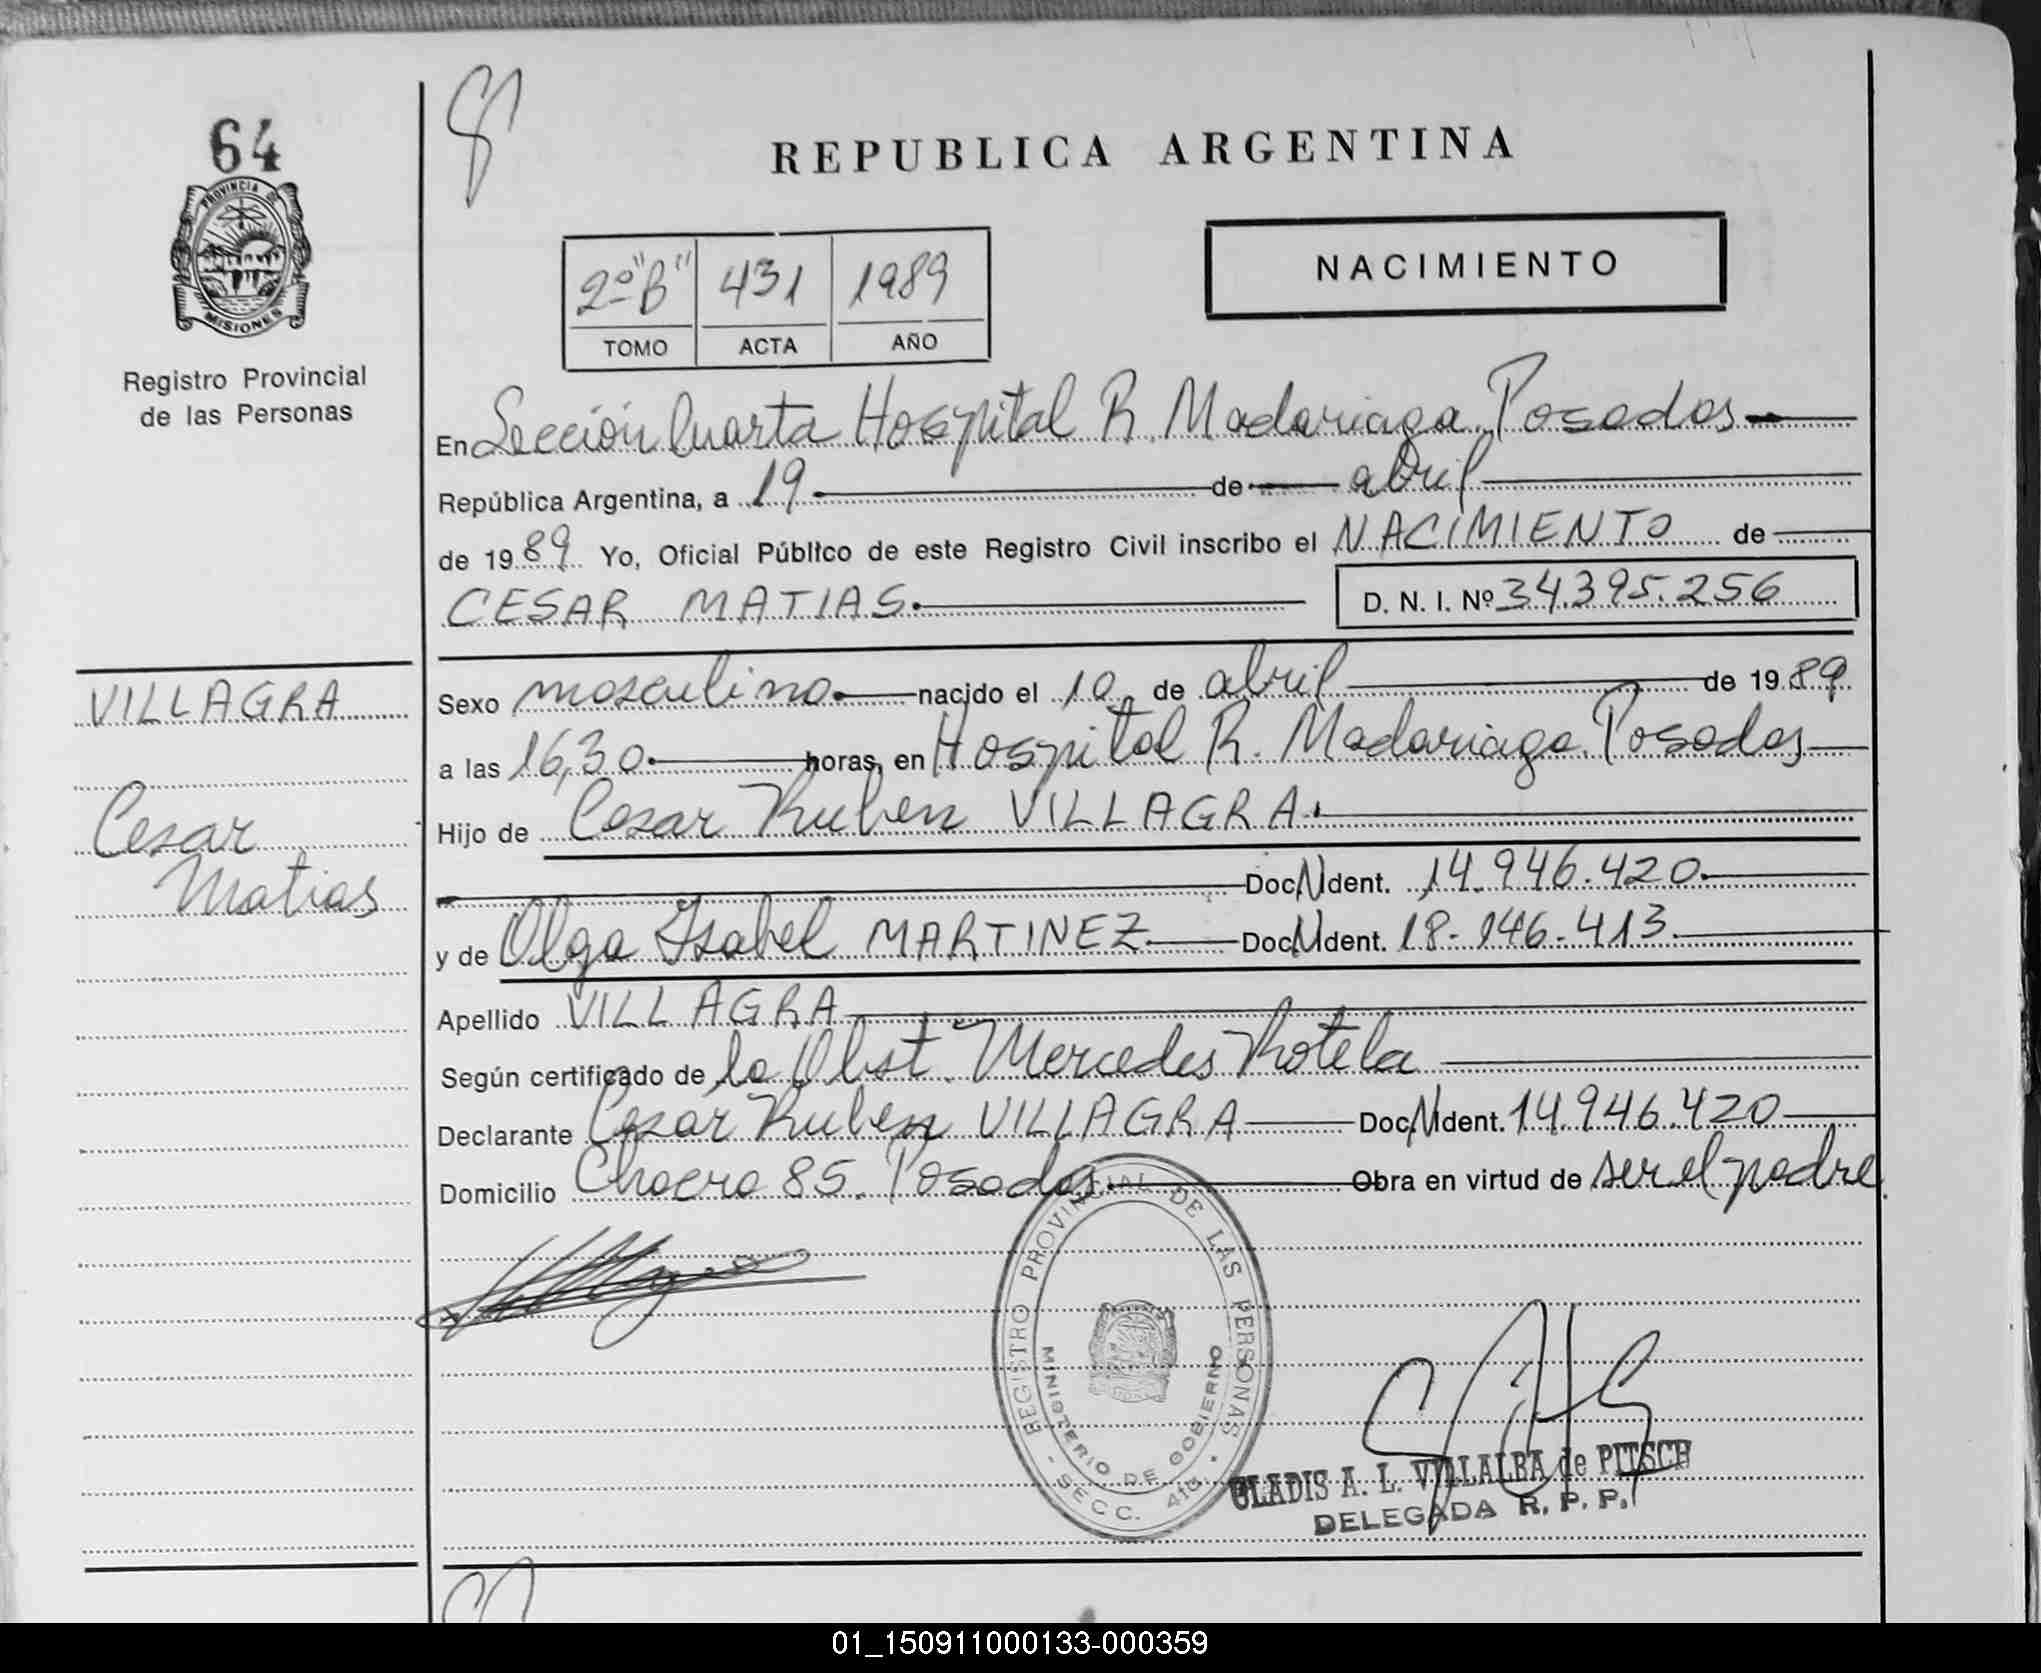 64
PROVINCIA DE
MISIONES
Registro Provincial
de las Personas
REPUBLICA ARGENTINA
2º "B" 431 1989
TOMO ACTA AÑO
NACIMIENTO
En Sección Cuarta Hospital R. Madariaga. Posadas
República Argentina, a 19 de abril
de 1989 Yo, Oficial Público de este Registro Civil inscribo el NACIMIENTO de
CESAR MATIAS D. N. I. Nº 34.395.256
VILLAGRA
Cesar
Matias
Sexo masculino nacido el 10 de abril de 1989
a las 16,30 horas, en Hospital R. Madariaga. Posadas
Hijo de Cesar Ruben VILLAGRA
Doc. N Ident. 14.946.420
y de Olga Isabel MARTINEZ Doc. N Ident. 18.146.413
Apellido VILLAGRA
Según certificado de la Obst. Mercedes Rotela
Declarante Cesar Ruben VILLAGRA Doc. N Ident. 14.946.420
Domicilio Chacra 85. Posadas Obra en virtud de ser el padre
REGISTRO PROVINCIAL DE LAS PERSONAS
MINISTERIO DE GOBIERNO
SECC. 413
GLADIS A. L. VILLALBA de PITSCH
DELEGADA R. P. P.
01_150911000133-000359